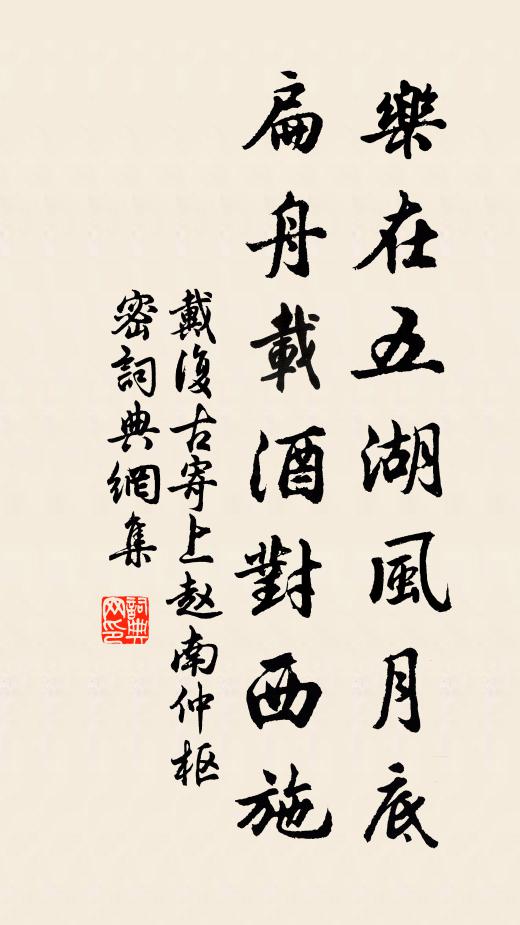 樂在五湖風月底
扁舟載酒對西施
戴復古寄上赵南仲枢
密詞典網集
詞典网印